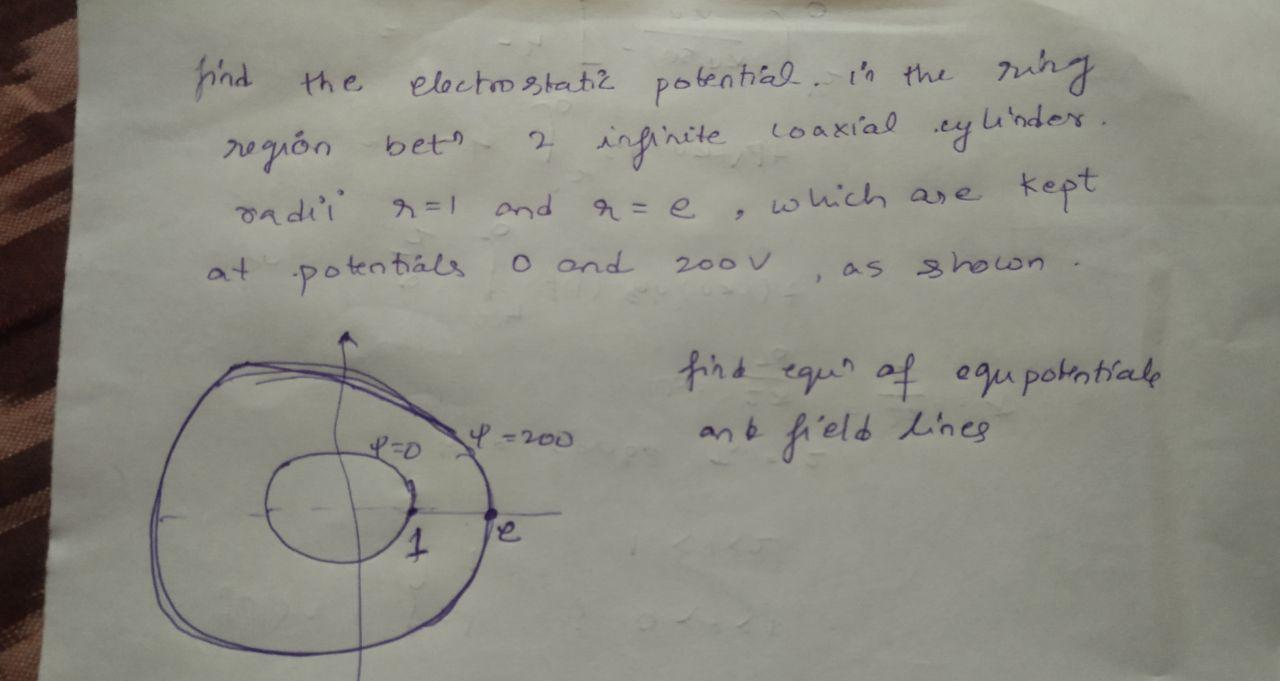 find the electrostatic potential. in the ring
region betn 2 infinite coaxial cylinder.
radii r=1 and r=e, which are kept
at potentials 0 and 200V, as shown.
find equn of equpotentials
and field lines
φ=0
φ=200
1
e